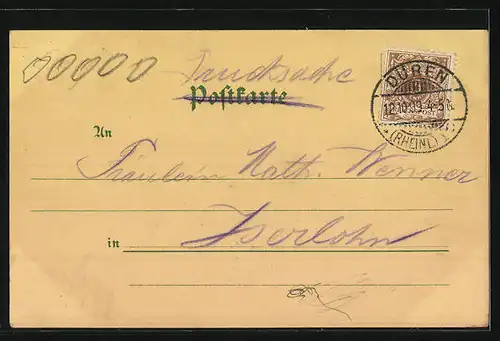 00000 Drucksache
Postkarte
DÜREN
12.10.99.4-5N.
(RHEINL.)
An
Fräulein Kath. Wenner
in Iserlohn